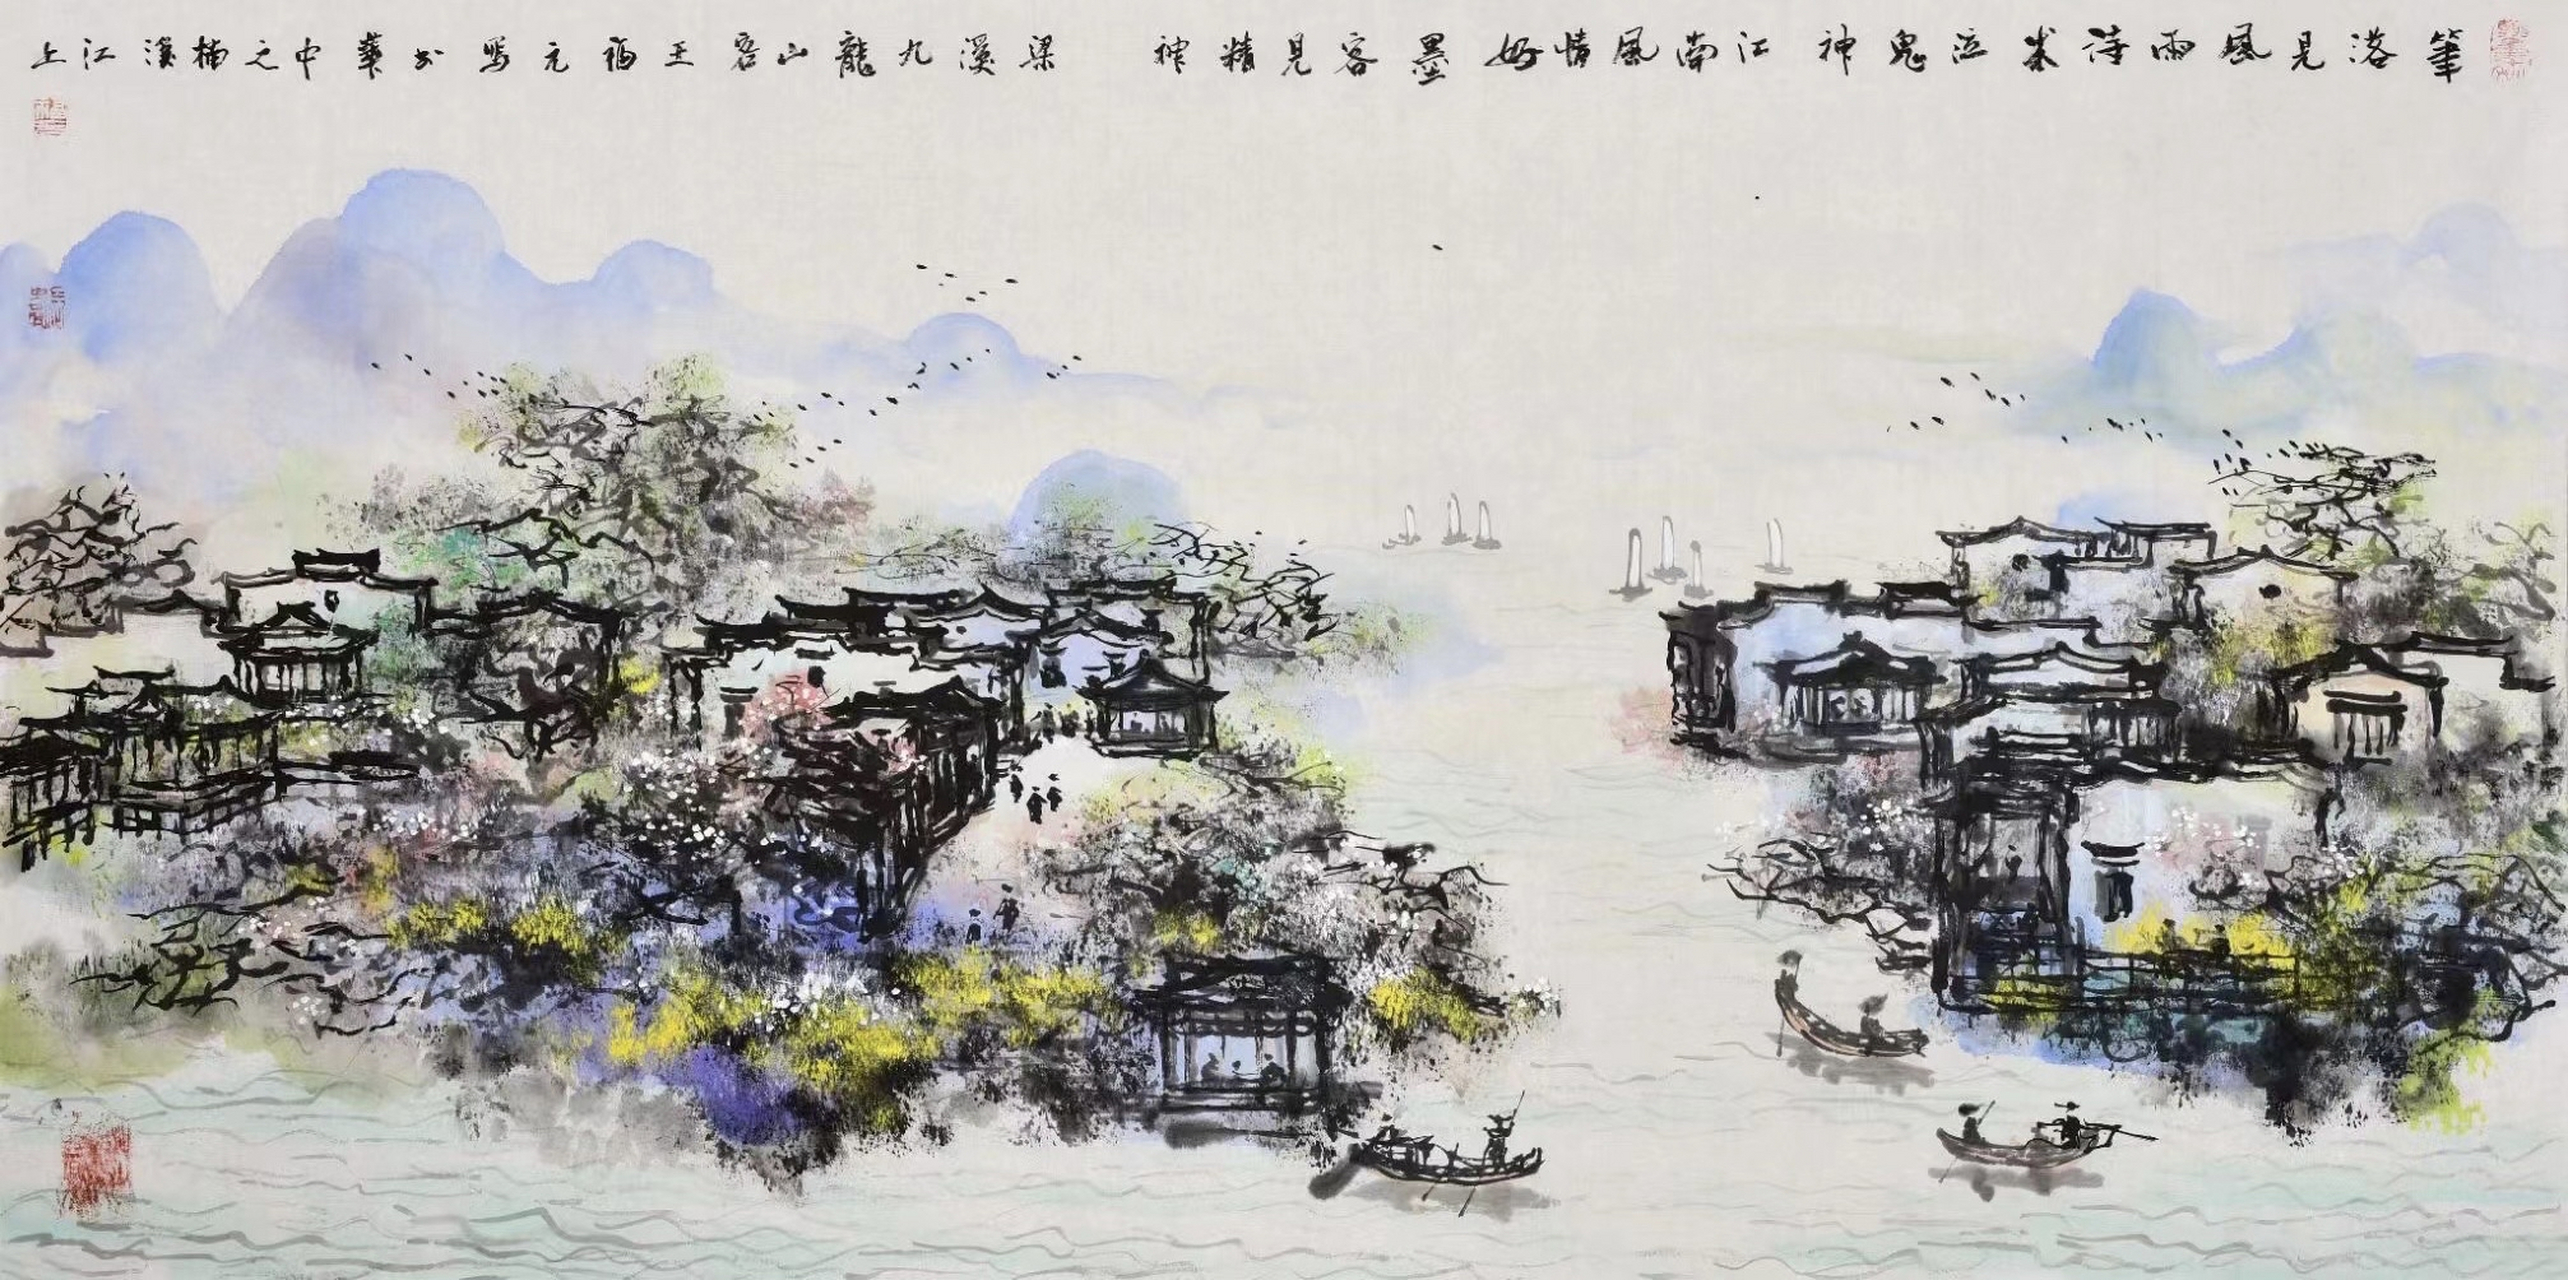 筆落見風雨 詩成泣鬼神 江南風情好 墨客見精神 梁溪九龍山客王福元寫於華中之楠溪江上